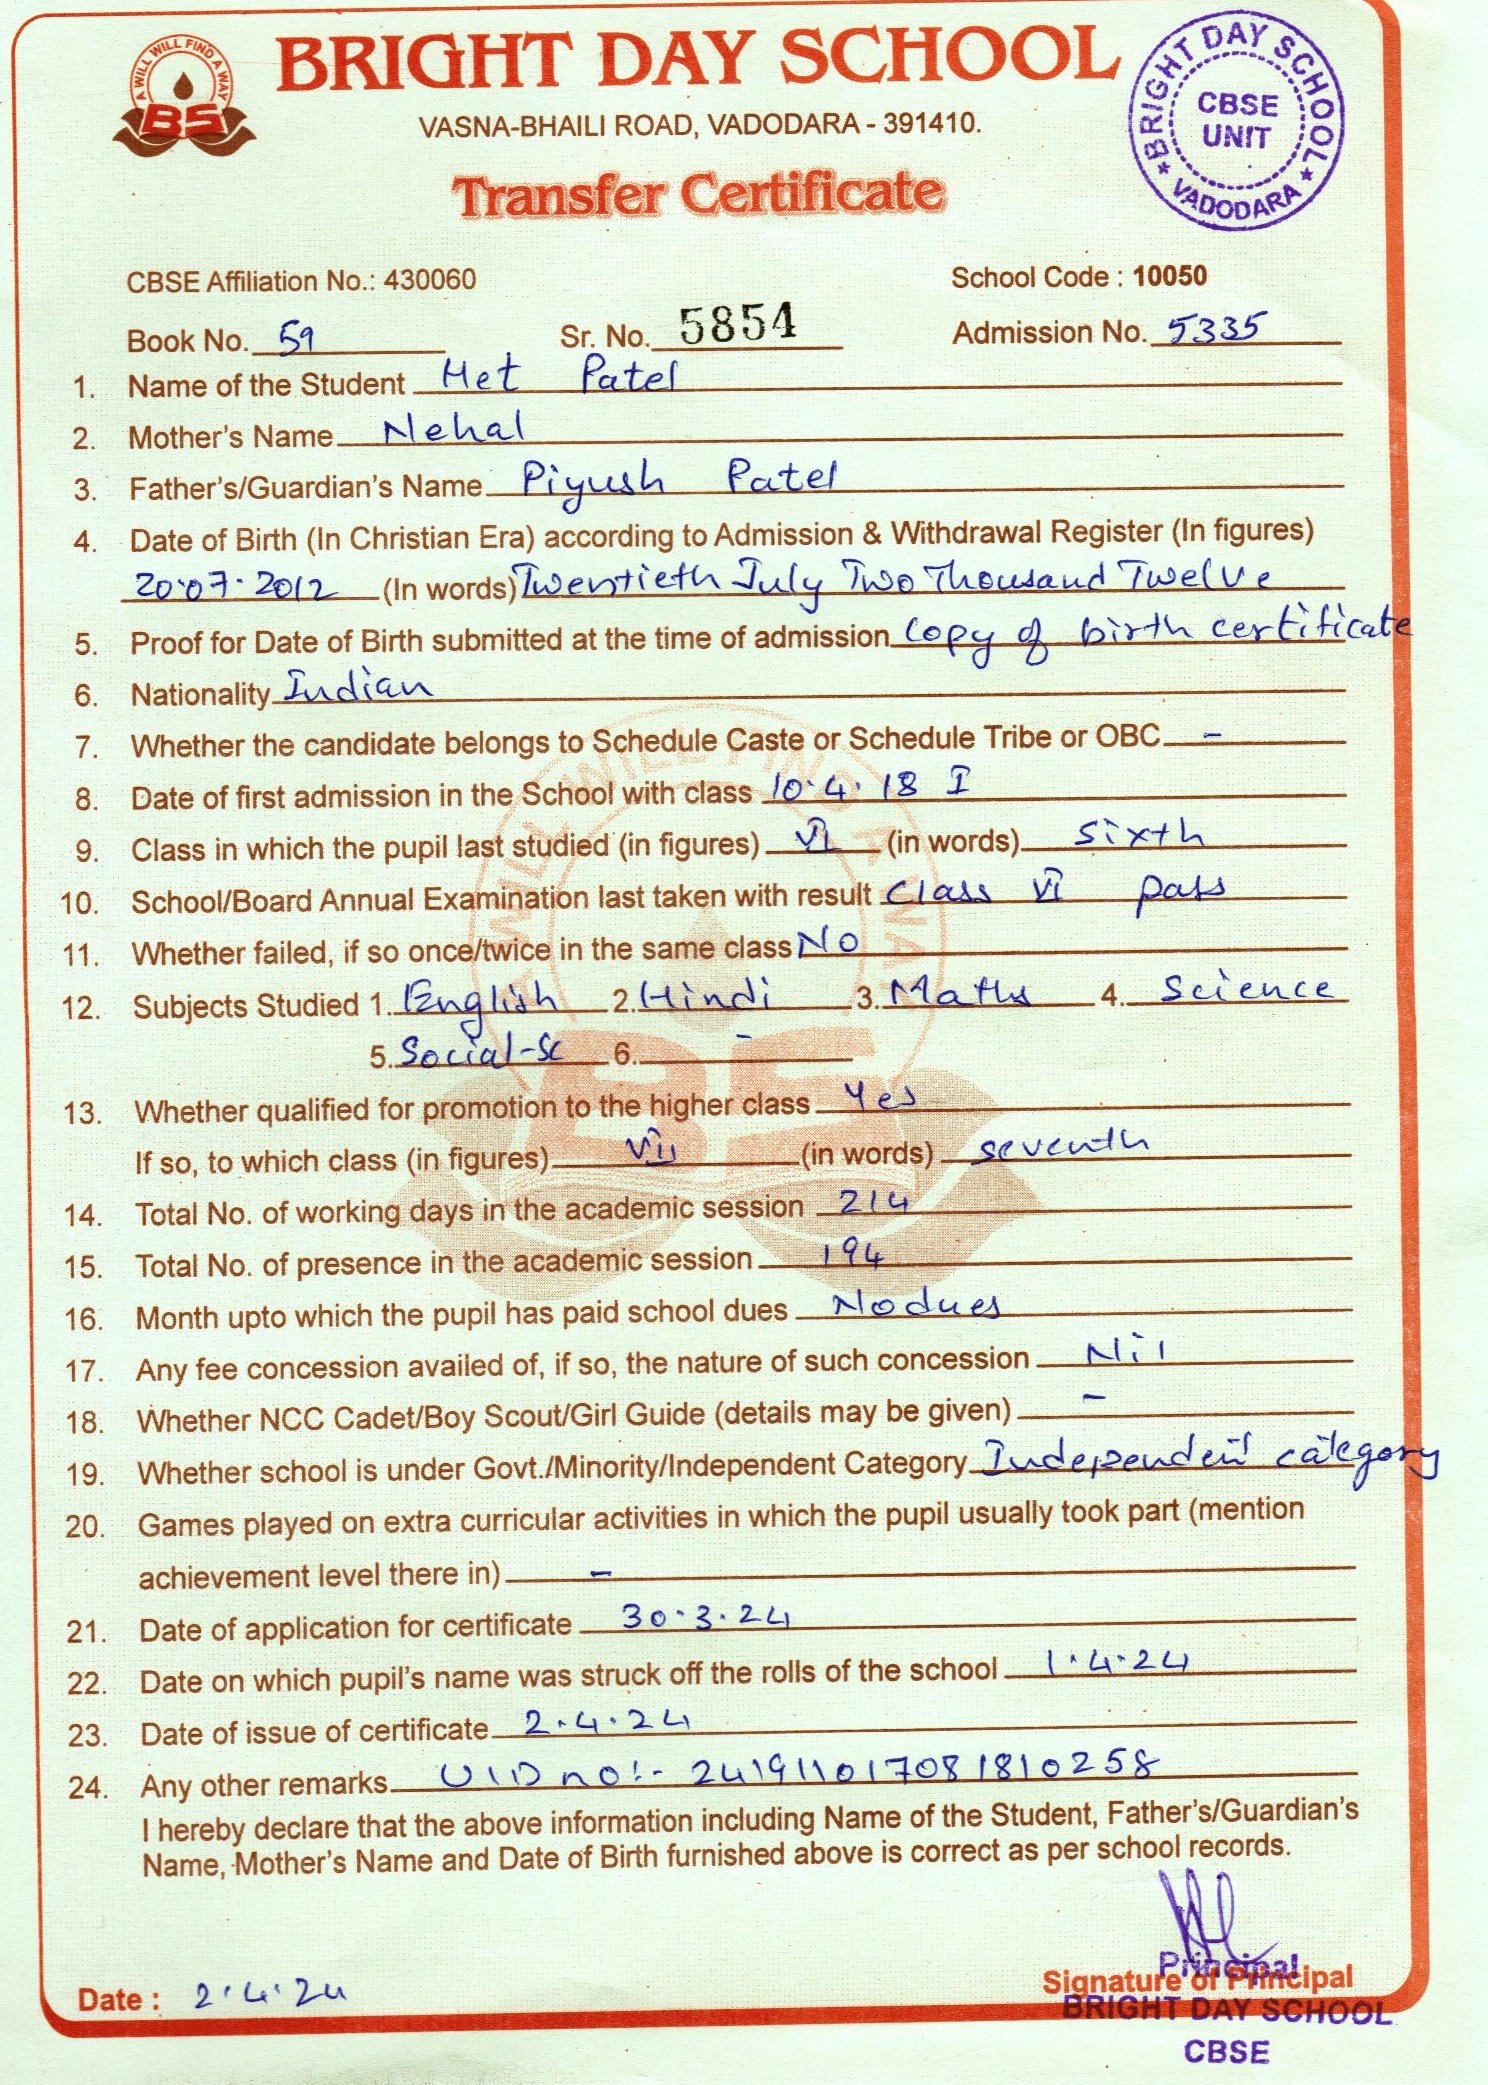 A WILL WILL FIND A WAY
BS
BRIGHT DAY SCHOOL
VASNA-BHAILI ROAD, VADODARA - 391410.
Transfer Certificate
BRIGHT DAY SCHOOL
CBSE
UNIT
VADODARA
CBSE Affiliation No.: 430060 School Code : 10050
Book No. 59 Sr. No. 5854 Admission No. 5335
1. Name of the Student Het Patel
2. Mother's Name Nehal
3. Father's/Guardian's Name Piyush Patel
4. Date of Birth (In Christian Era) according to Admission & Withdrawal Register (In figures)
20.07.2012 (In words) Twentieth July Two Thousand Twelve
5. Proof for Date of Birth submitted at the time of admission Copy of birth certificate
6. Nationality Indian
7. Whether the candidate belongs to Schedule Caste or Schedule Tribe or OBC -
8. Date of first admission in the School with class 10.4.18 I
9. Class in which the pupil last studied (in figures) VI (in words) Sixth
10. School/Board Annual Examination last taken with result Class VI pass
11. Whether failed, if so once/twice in the same class No
12. Subjects Studied 1. English 2. Hindi 3. Maths 4. Science
5. Social-Sc 6. -
13. Whether qualified for promotion to the higher class Yes
If so, to which class (in figures) VII (in words) seventh
14. Total No. of working days in the academic session 214
15. Total No. of presence in the academic session 194
16. Month upto which the pupil has paid school dues No dues
17. Any fee concession availed of, if so, the nature of such concession Nil
18. Whether NCC Cadet/Boy Scout/Girl Guide (details may be given) -
19. Whether school is under Govt./Minority/Independent Category Independent category
20. Games played on extra curricular activities in which the pupil usually took part (mention
achievement level there in) -
21. Date of application for certificate 30.3.24
22. Date on which pupil's name was struck off the rolls of the school 1.4.24
23. Date of issue of certificate 2.4.24
24. Any other remarks UID no:- 241911017081810258
I hereby declare that the above information including Name of the Student, Father's/Guardian's
Name, Mother's Name and Date of Birth furnished above is correct as per school records.
Principal
Date : 2.4.24 Signature of Principal
BRIGHT DAY SCHOOL
CBSE